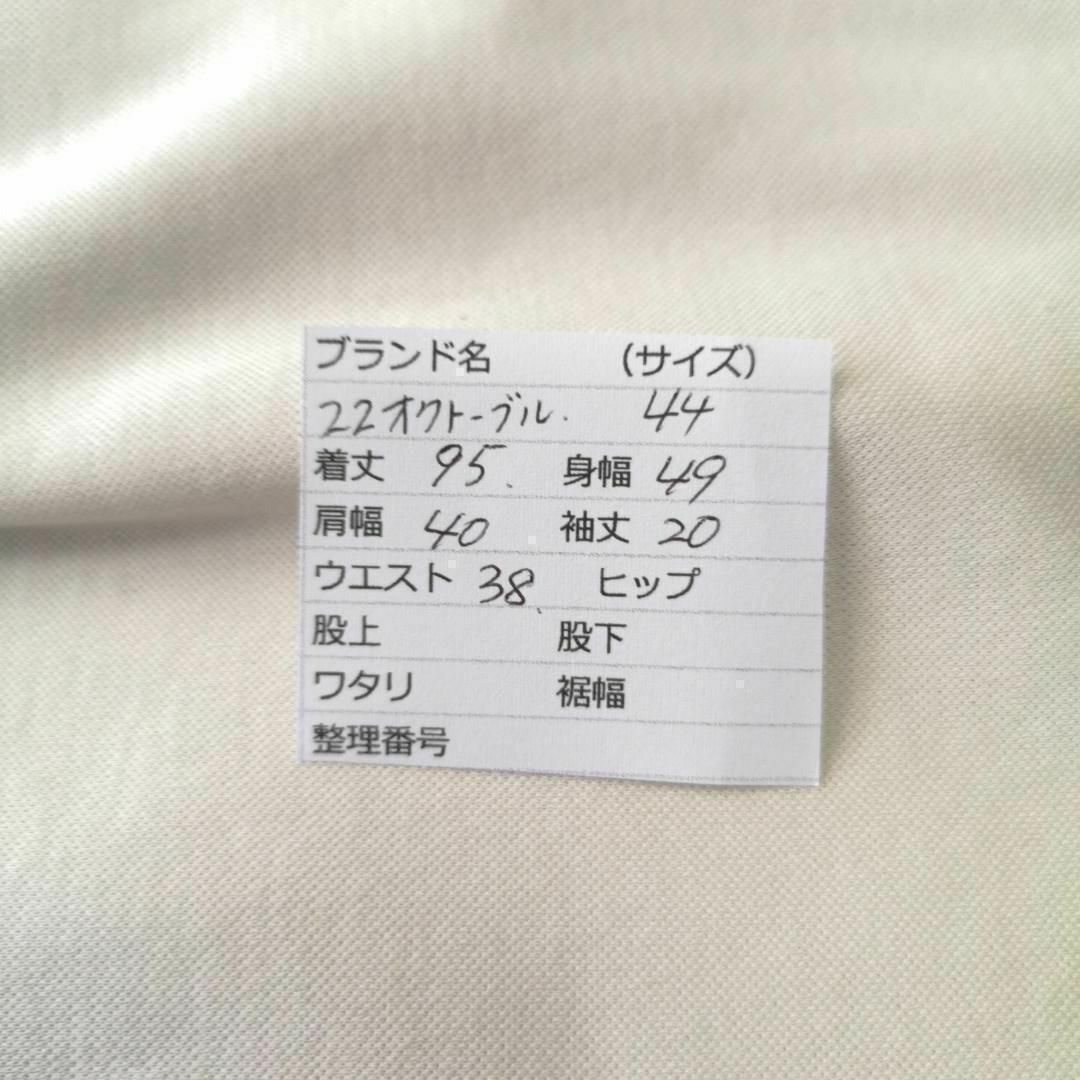 ブランド名 （サイズ）
22オクトーブル. 44
着丈 95. 身幅 49
肩幅 40 袖丈 20
ウエスト 38 ヒップ
股上 股下
ワタリ 裾幅
整理番号